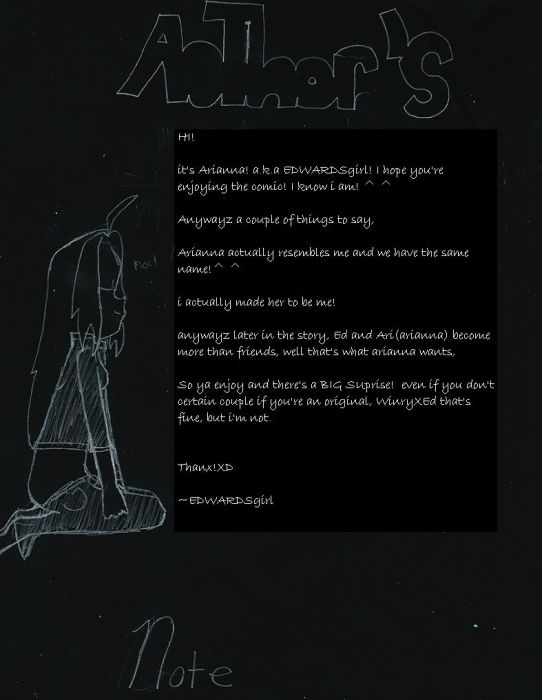 Author's
HI!
it's Arianna! a.k.a EDWARDSgirl! I hope you're
enjoying the comic! I know i am! ^ ^
Anywayz a couple of things to say,
Arianna actually resembles me and we have the same
name! ^ ^
i actually made her to be me!
anywayz later in the story, Ed and Ari(arianna) become
more than friends, well that's what arianna wants,
So ya enjoy and there's a BIG SUprise! even if you don't
certain couple if you're an original, WinryXEd that's
fine, but i'm not.
Thanx!XD
~EDWARDSgirl
Note